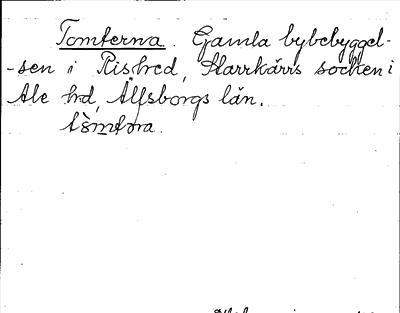 Tomterna. Gamla bybebyggel-
-sen i Risired, Starrkärrs socken i
Ale hrd, Älfsborgs län.